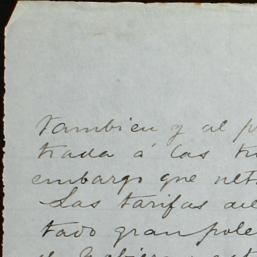 tambien y al p
trada á las tr
embargo que net
Las tarifas de
tado gran pole